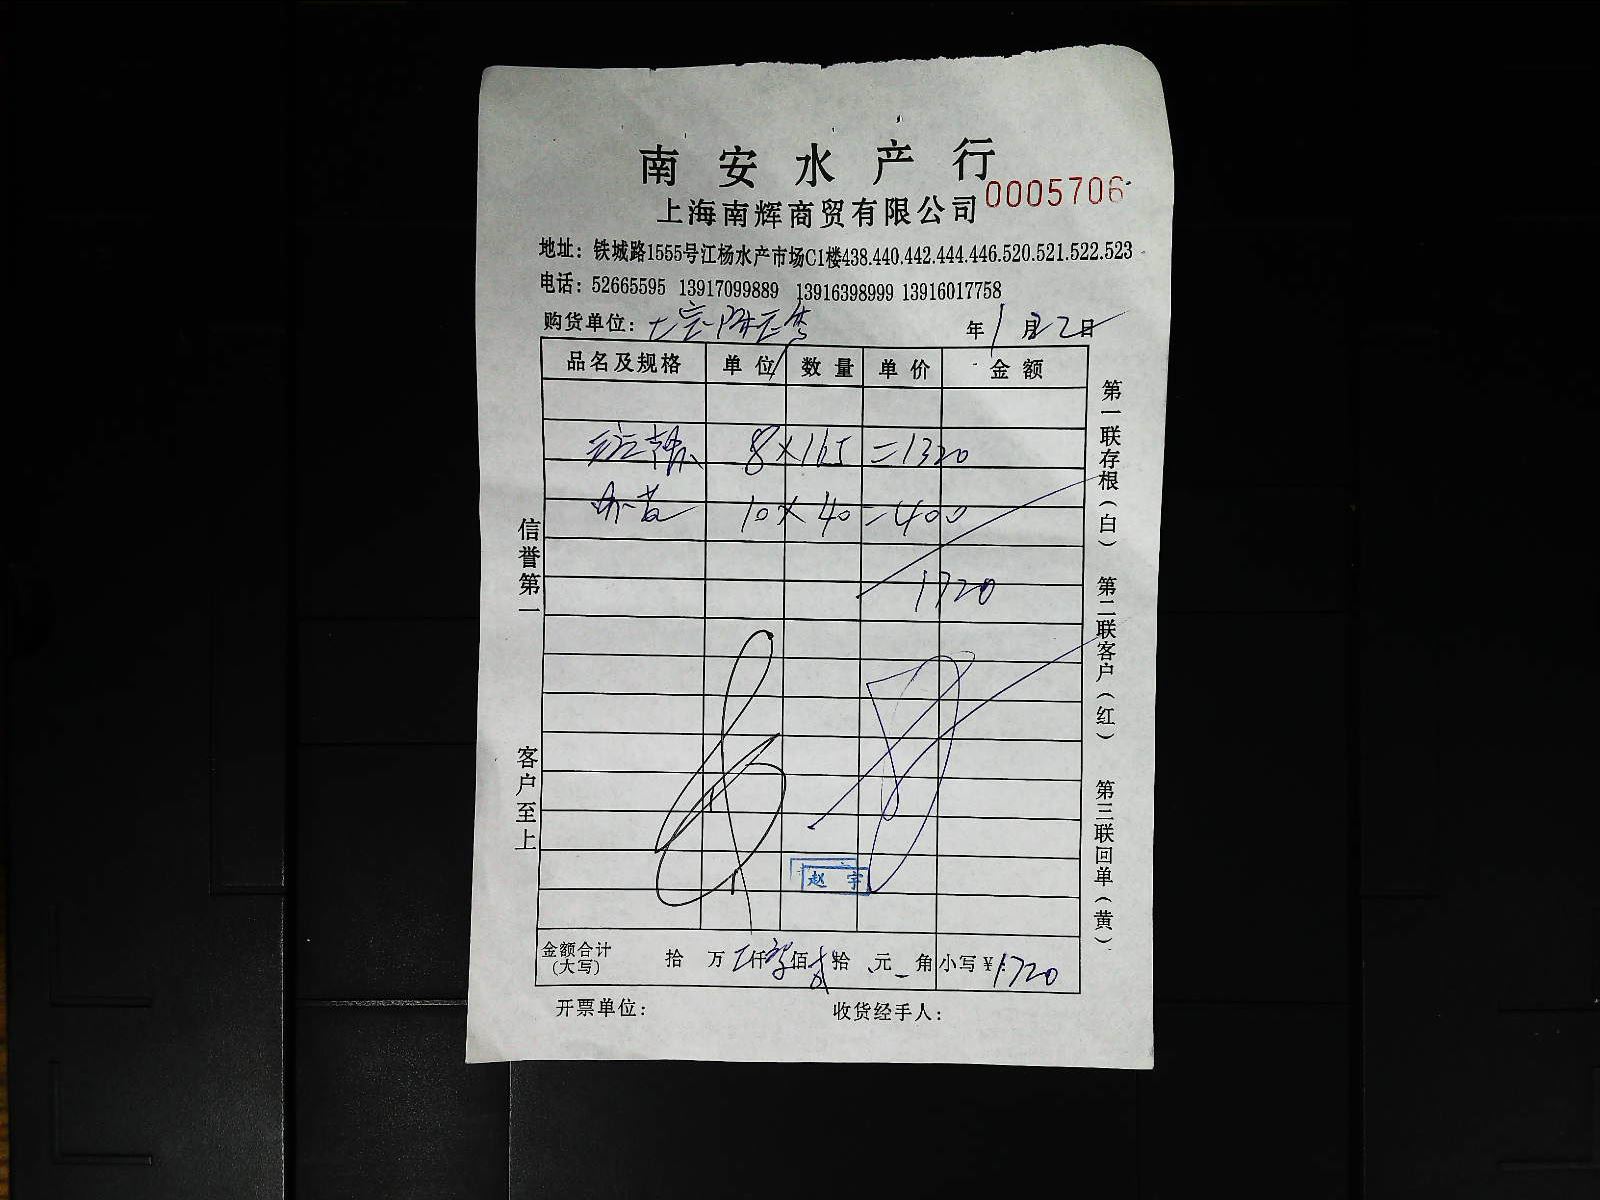 南安水产行
上海南辉商贸有限公司 0005706
地址：铁城路1555号江杨水产市场C1楼438.440.442.444.446.520.521.522.523
电话：52665595 13917099889 13916398999 13916017758
购货单位： 年1月2日
品名及规格 单位 数量 单价 金额
8×165=1320
10×40=400
1720
赵宇
金额合计（大写） 拾 万 仟 佰 拾 元 角 小写¥：1720
开票单位： 收货经手人：
信誉第一
客户至上
第一联存根（白） 第二联客户（红） 第三联回单（黄）